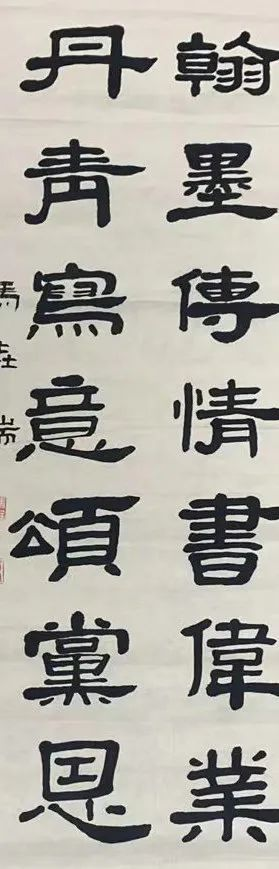 翰墨傳情書偉業
丹青寫意頌黨恩
馬